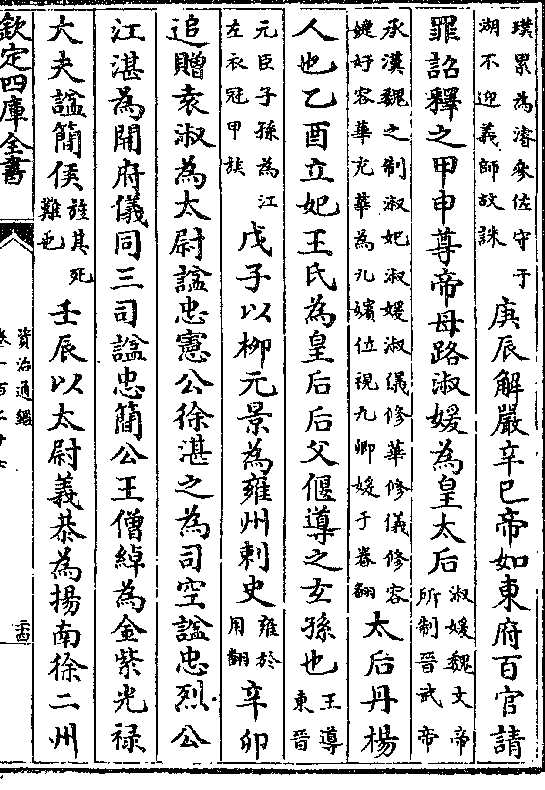 璞累為濬參佐守于
湖不迎義師故誅
庚辰解嚴辛巳帝如東府百官請
罪詔釋之甲申尊帝母路淑媛為皇太后
淑媛魏文帝
所制晉武帝
承漢魏之制淑妃淑媛淑儀修華修儀修容
婕妤容華充華為九嬪位視九卿媛于眷翻
太后丹楊
人也乙酉立妃王氏為皇后后父偃導之玄孫也
王導
東晉
元臣子孫為江
左衣冠甲族
戊子以柳元景為雍州刺史
雍於
用翻
辛卯
追贈袁淑為太尉諡忠憲公徐湛之為司空諡忠烈公
江湛為開府儀同三司諡忠簡公王僧綽為金紫光祿
大夫諡簡侯
旌其死
難也
壬辰以太尉義恭為揚南徐二州
欽定四庫全書
資治通鑑